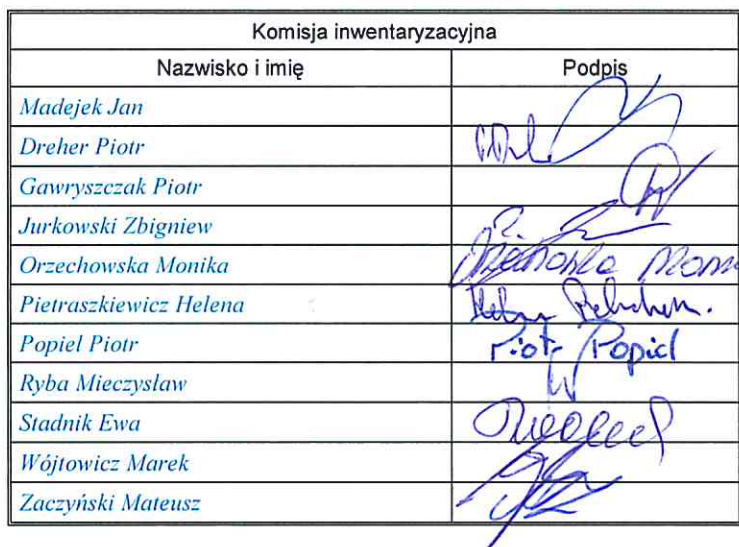 Komisja inwentaryzacyjna
Nazwisko i imię Podpis
Madejek Jan
Dreher Piotr
Gawryszczak Piotr
Jurkowski Zbigniew
Orzechowska Monika
Pietraszkiewicz Helena
Popiel Piotr Piotr Popiel
Ryba Mieczysław
Stadnik Ewa
Wójtowicz Marek
Zaczyński Mateusz